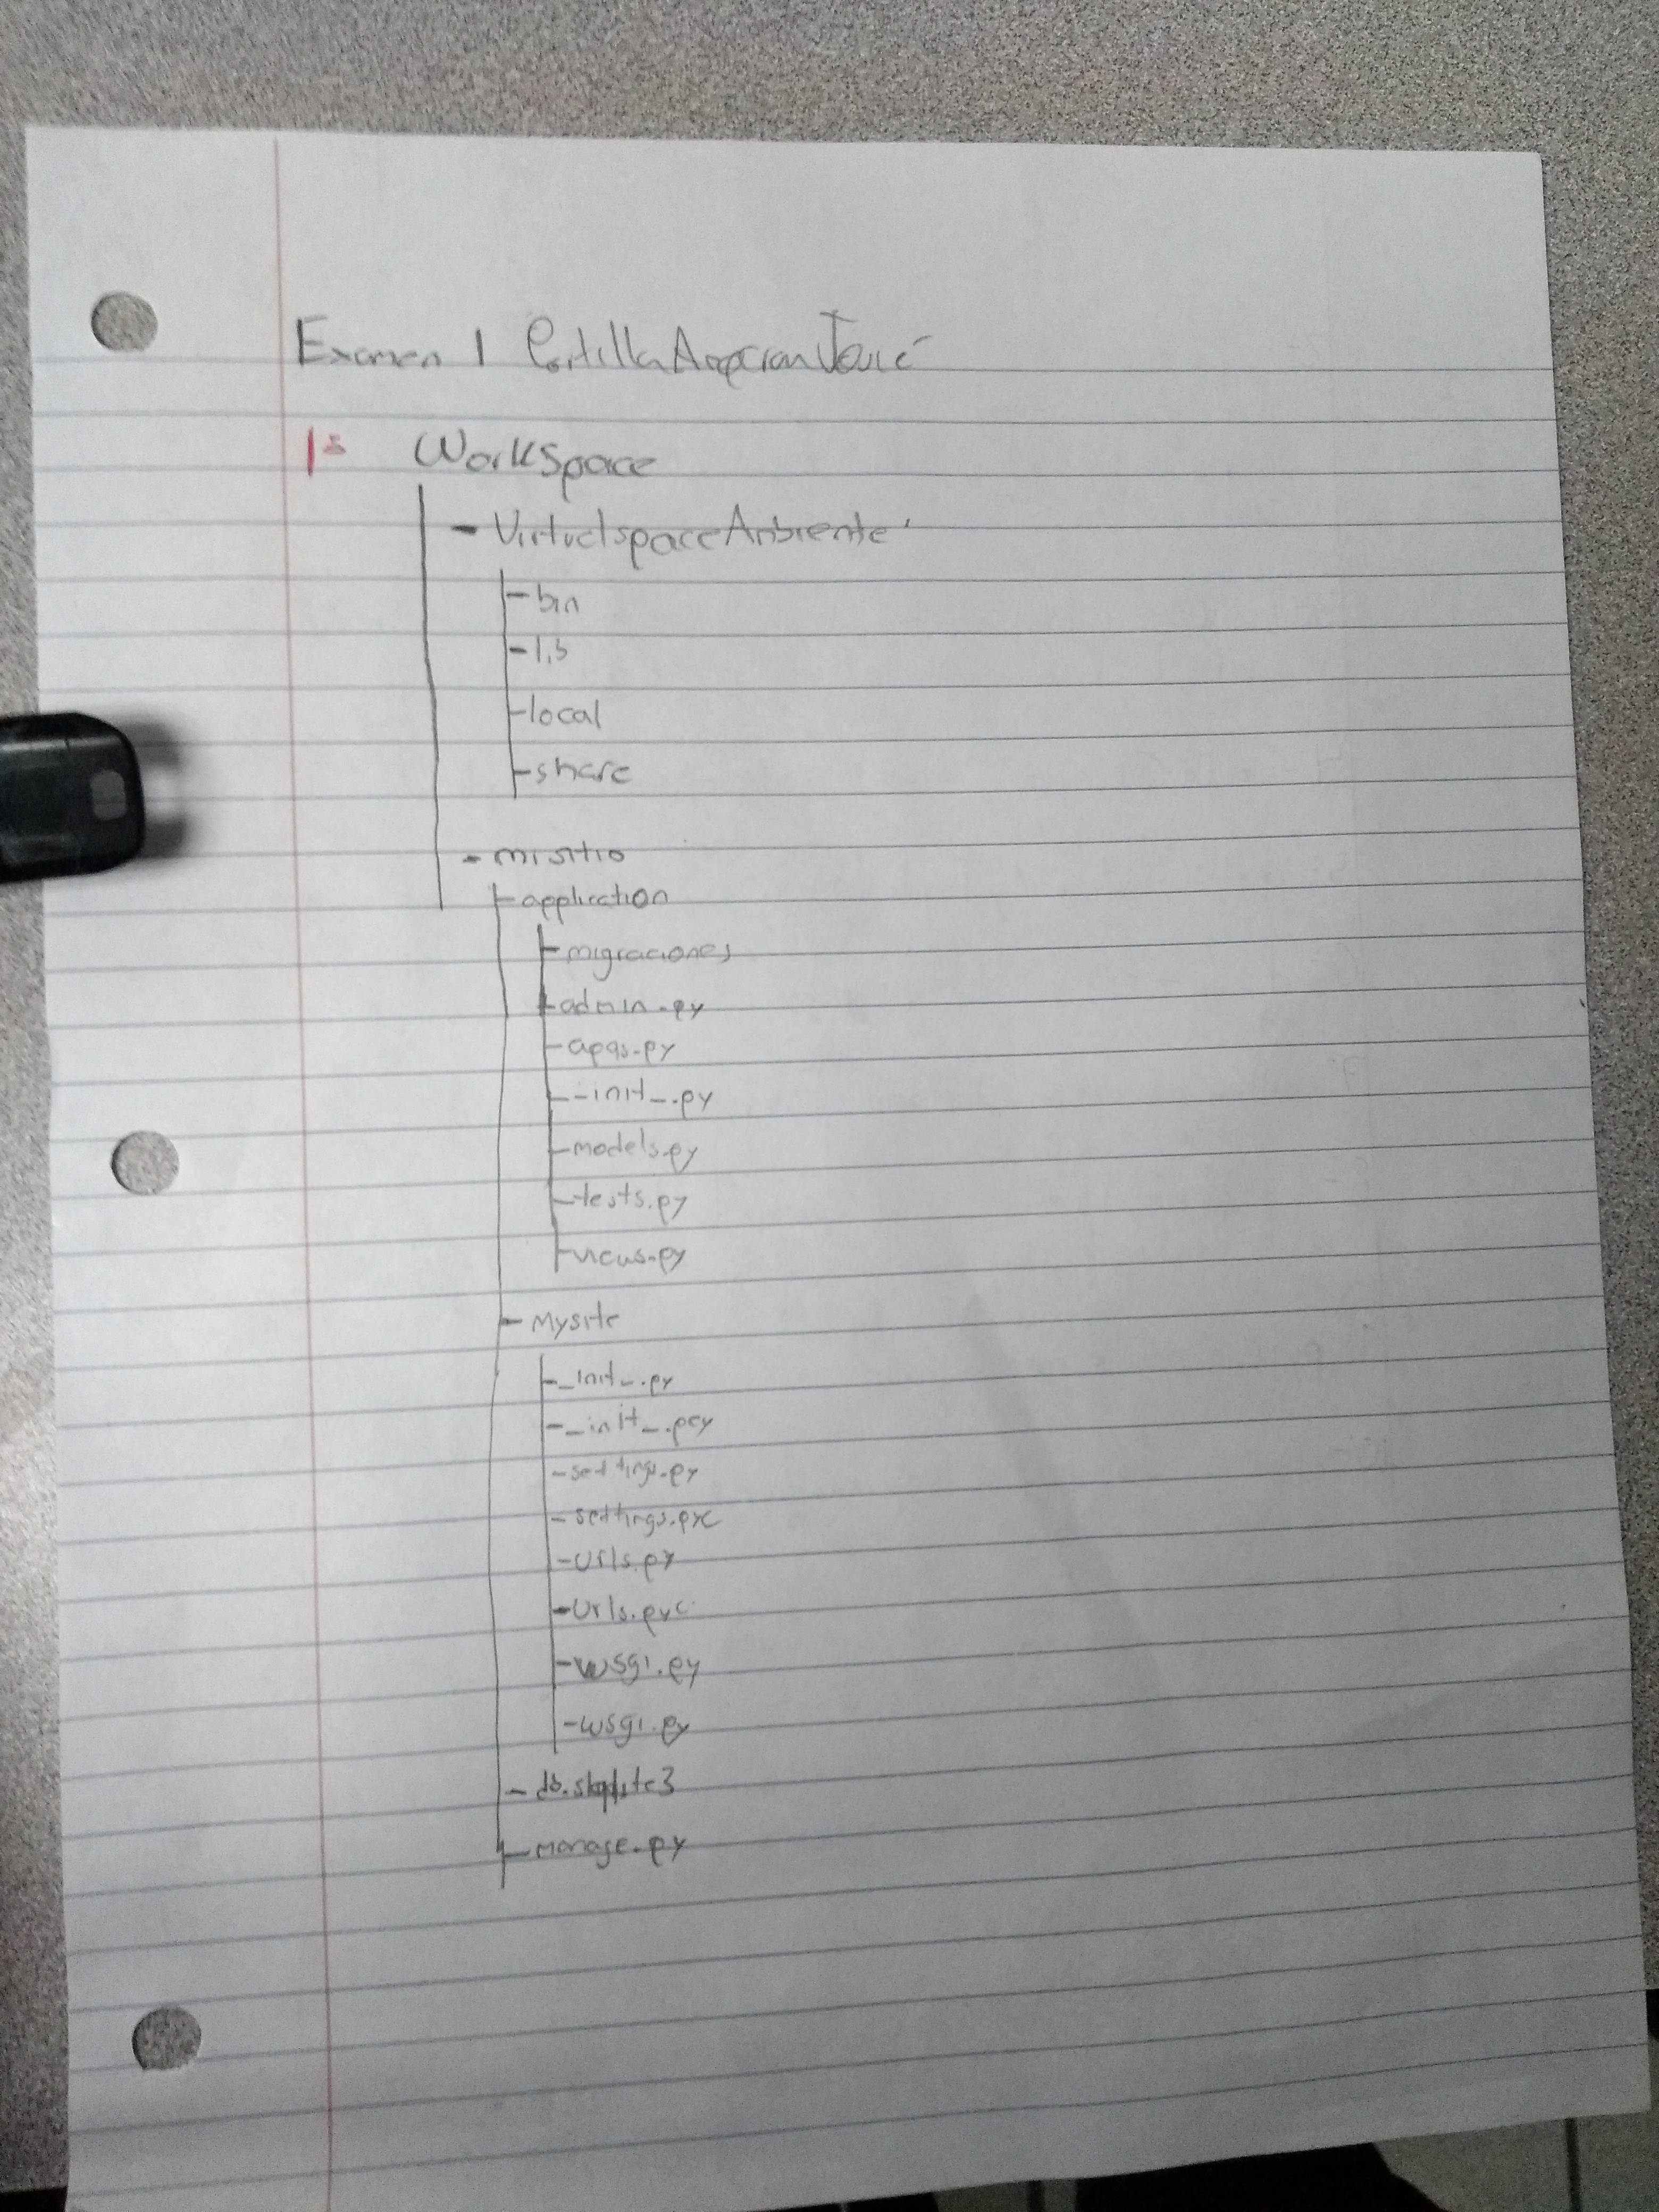 Examen 1 Portilla Josué
1: WorkSpace
- VirtualspaceAmbiente
- bin
- lib
- local
- share
- misitio
- application
- migraciones
- admin.py
- apps.py
- _init_.py
- models.py
- tests.py
- views.py
- Mysite
- _init_.py
- _init_.pcy
- settings.py
- settings.pyc
- urls.py
- Urls.pyc
- wsgi.py
- wsgi.py
- manage.py